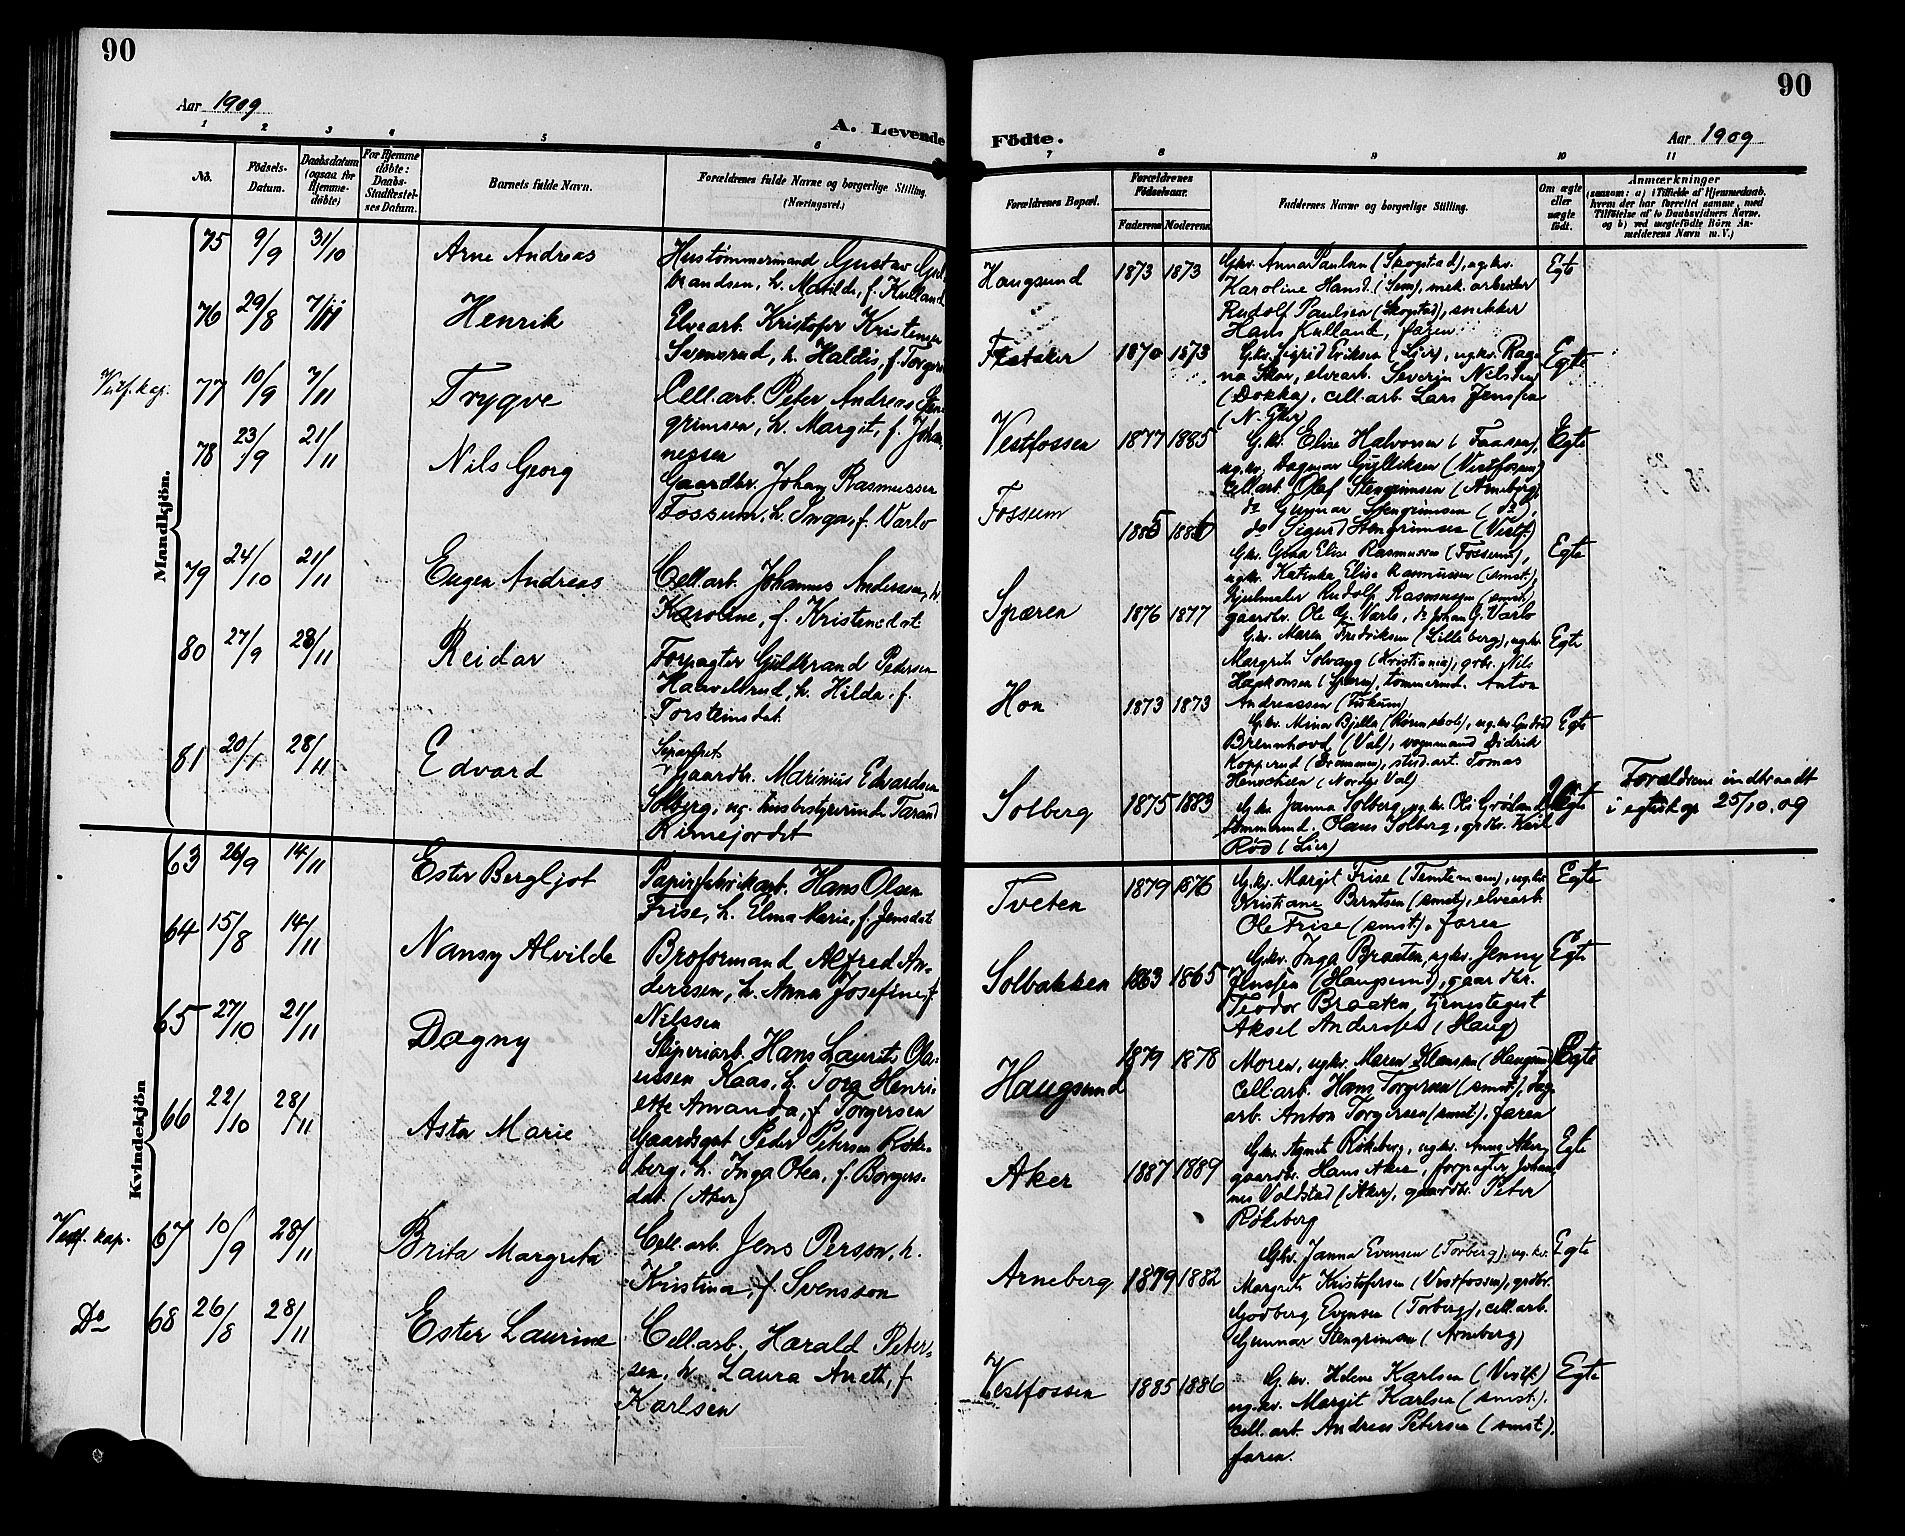 90
Aar 1909
A. Levende
1 2 3 4 5 6
No.
Födsels-
Datum.
Daabsdatum
(ogsaa for
Hjemme-
døbte)
For Hjemme
døbte:
Daabs-
Stadfæstel-
ses Datum.
Barnets fulde Navn.
Forældrenes fulde Navne og borgerlige Stilling.
(Næringsvei.)
Mandkjön.
75 9/9 31/10 Arne Andreas
Hustømmermand Gustav Gul
brandsen, h. Matilde, f. Kulland
76 29/8 7/11 Henrik
Elvearb. Kristofer Kristensen
Svensrud, h. Haldis, f. Torgers
Vestf. kap. 77 10/9 7/11 Trygve
Cell.arb. Peter Andreas Sten
grimsen, h. Margit, f. Johan
nessen
78 23/9 21/11 Nils Georg
Gaardbr. Johan Rasmussen
Fossum, h. Inga, f. Varlo
79 24/10 21/11 Eugen Andreas
Cell.arb. Johannes Andersen, h.
Karoline, f. Kristensdat.
80 27/9 28/11 Reidar
Forpagter Guldbrand Pedersen
Haavelsrud, h. Hilda, f.
Torsteinsdat.
81 20/1 28/11 Edvard
Separeret
Gaardbr. Marinius Edvardsen
Solberg, og husbestyrerinde Taran
Rimejordet
Kvindekjön
63 26/9 14/11 Ester Bergljot
Papirfabrikarb. Hans Olsen
Frise, h. Elma Marie, f. Jensdat
64 15/8 14/11 Nansy Alvilde
Broformand Alfred An-
derssen, h. Anna Josefine, f.
Nilssen
65 27/10 21/11 Dagny
Sliperiarb. Hans Laurits Ola-
ussen Kaas, h. Tora Henri-
ette Amanda, f. Torgersen
66 22/10 28/11 Asta Marie
Gaardsgut Peder Petersen Røke-
berg, h. Inga Olea, f. Borgers-
dat. (Aker)
Vestf. kap. 67 10/9 28/11 Brita Margreta
Cell.arb. Jens Person, h.
Kristina, f. Svensson
Do 68 26/8 28/11 Ester Laurine
Cell.arb. Harald Peter-
sen, h. Laura Anette, f.
Karlsen
90
Födte.
Aar 1909
7 8 9 10 11
Forældrenes Bopæl.
Forældrenes
Födselsaar.
Faderens Moderens
Faddernes Navne og borgerlige Stilling.
Om ægte
eller
uægte
födt.
Anmærkninger
(saasom: a) i Tilfælde af Hjemmedaab,
hvem der har forrettet samme, med
Tilföielse af to Daabsvidners Navne,
og b) ved uægtefödte Börn An-
melderens Navn m. V.)
Haugsund 1873 1873 Egte
Gkv. Anna Paulsen (Skogstad), ugkv.
Karoline Hansd. (Sem), mek. arbeider
Rudolf Paulsen (Skogstad), snekker
Hans Kulland, faren
1870 1873 Egte
Gkv. Sigrid Eriksen (Lier), ugkv. Rag
na Skar, elvearb. Severin Nilssen
(Dokka), cell.arb. Lars Jenssen
Vestfossen 1877 1885 Egte
Gkv. Elise Halvorsen (Faasen),
ugkv. Dagmar Gulliksen (Vestfossen)
cell.arb. Olaf Stengrimsen (Arneberg)
do Gunnar Stengrimsen (do),
do Sigurd Stengrimsen (Vestf.)
Fossum 1885 1886 Egte
Gkv. Gina Elise Rasmussen (Fossum),
ugkv. Katinka Elise Rasmussen (smst.),
hjulmaker Rudolf Rasmussen (smst.)
gaardbr. Ole G. Varlo, do Johan G. Varlo
Spæren 1876 1877 Egte
Gkv. Maren Fredriksen (Lilleberg), ugkv.
Margrete Solvang (Kristiania), grbr. Nils
Haakonsen (Spæren), tømmermd. Anton
Andreassen (Fiskum)
Hon 1873 1873 Egte
Gkv. Mina Bjella, ugkv. Gudrid
Brennhovd (Val), vognmand Didrik
Kopperud (Drammen), stud.art. Tomas
Henschien (Nordre Val)
Solberg 1875 1883 Uegte
Gkv. Janna Solberg, ugkv. Ole Grøland,
tømmermd. Olaus Solberg, grdbr. Karl
Rød (Lier)
Forældrene indtraadt
i egtesk ap 25/10. 09
Tveten 1879 1876 Egte
Gkv. Margit Frise, ugkv.
Kristiane Berntsen (smst), elvearb.
Ole Frise (smst), faren
Solbakken 1863 1865 Egte
Gkv. Inga Braaten, ugkv. Jenny
Jenssen (Haugsund), gaardbr.
Teodor Braaten, tjenestegut
Aksel Anderssen (Haug)
Haugsund 1879 1878 Egte
Moren, ugkv. Maren Klausen (Haugsund)
Cell.arb. Hans Torgersen (smst),
arb. Anton Torgersen (smst), faren
Aker 1887 1889 Egte
Gkv. Agnete Røkeberg, ugkv. Anna Aker,
gaardbr. Hans Aker, forpagter Johan
nes Voldstad (Aker), gaardbr. Peter
Røkeberg
Arneberg 1879 1882 Egte
Gkv. Janna Evensen (Torberg), ug.kv.
Margrete Kristofersen (Vestfossen), grdbr.
Godberg Evensen (Torberg), cell.arb.
Gunnar Stengrimsen (Arneberg)
Vestfossen 1885 1886 Egte
G. kv. Helene Karlsen (Vestf.)
ug.kv. Margit Karlsen (smst.).
cell.arb. Andreas Petersen (smst),
faren.